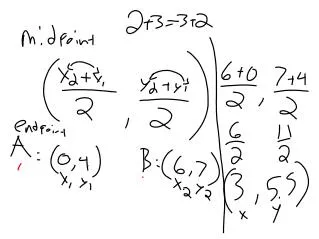 2+3=3+2
midpoint
(x₂+x₁/2, y₂+y₁/2)
endpoint
A: (0,4)
x₁ y₁
B: (6,7)
x₂ y₂
6+0/2, 7+4/2
6/2 11/2
(3, 5.5)
x y